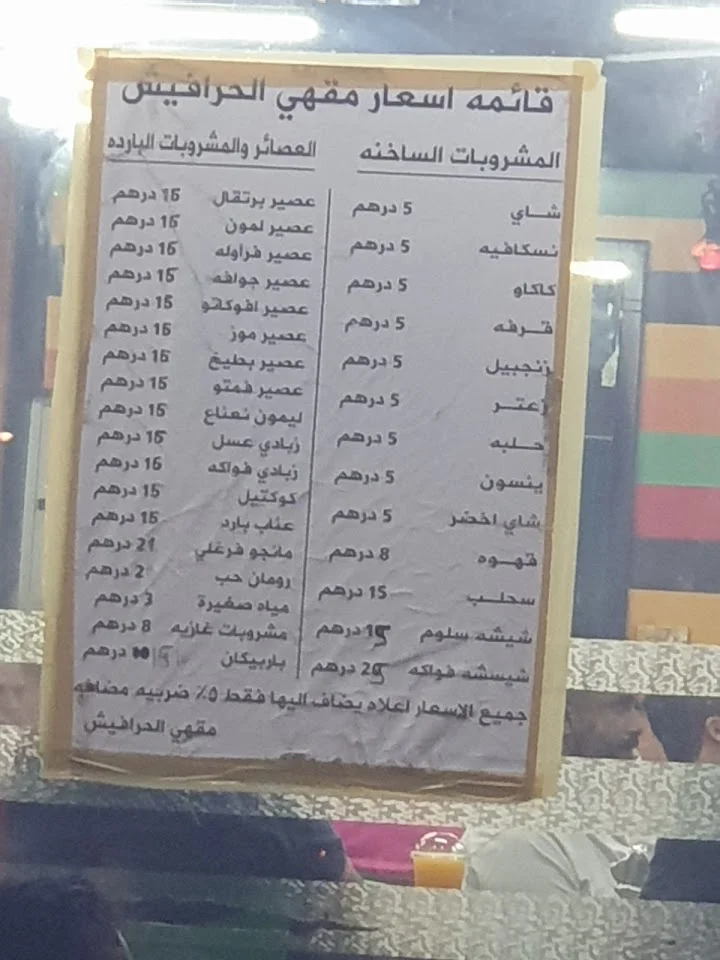 قائمه اسعار مقهي الحرافيش
المشروبات الساخنه
شــاي 5 درهم
نسكافيه 5 درهم
كاكاو 5 درهم
قــرفه 5 درهم
زنجبيل 5 درهم
زعتــر 5 درهم
حــلبه 5 درهم
ينسون 5 درهم
شاي اخضر 5 درهم
قهــوه 8 درهم
سحلــب 15 درهم
شيشه سلوم 15 درهم
شيسشه فواكه 25 درهم
العصائر والمشروبات البارده
عصير برتقال 15 درهم
عصير لمون 15 درهم
عصير فراوله 15 درهم
عصير جوافه 15 درهم
عصير افوكاتو 15 درهم
عصير موز 15 درهم
عصير بطيخ 15 درهم
عصير فمتو 15 درهم
ليمون نعناع 15 درهم
زبادي عسل 15 درهم
زبادي فواكه 15 درهم
كوكتيل 15 درهم
عناب بارد 15 درهم
مانجو فرغلي 21 درهم
رومان حب 2 درهم
مياه صغيرة 3 درهم
مشروبات غازيه 8 درهم
باربيكان 15 درهم
جميع الاسعار اعلاه يضاف اليها فقط ٥٪ ضريبه مضافه
مقهي الحرافيش